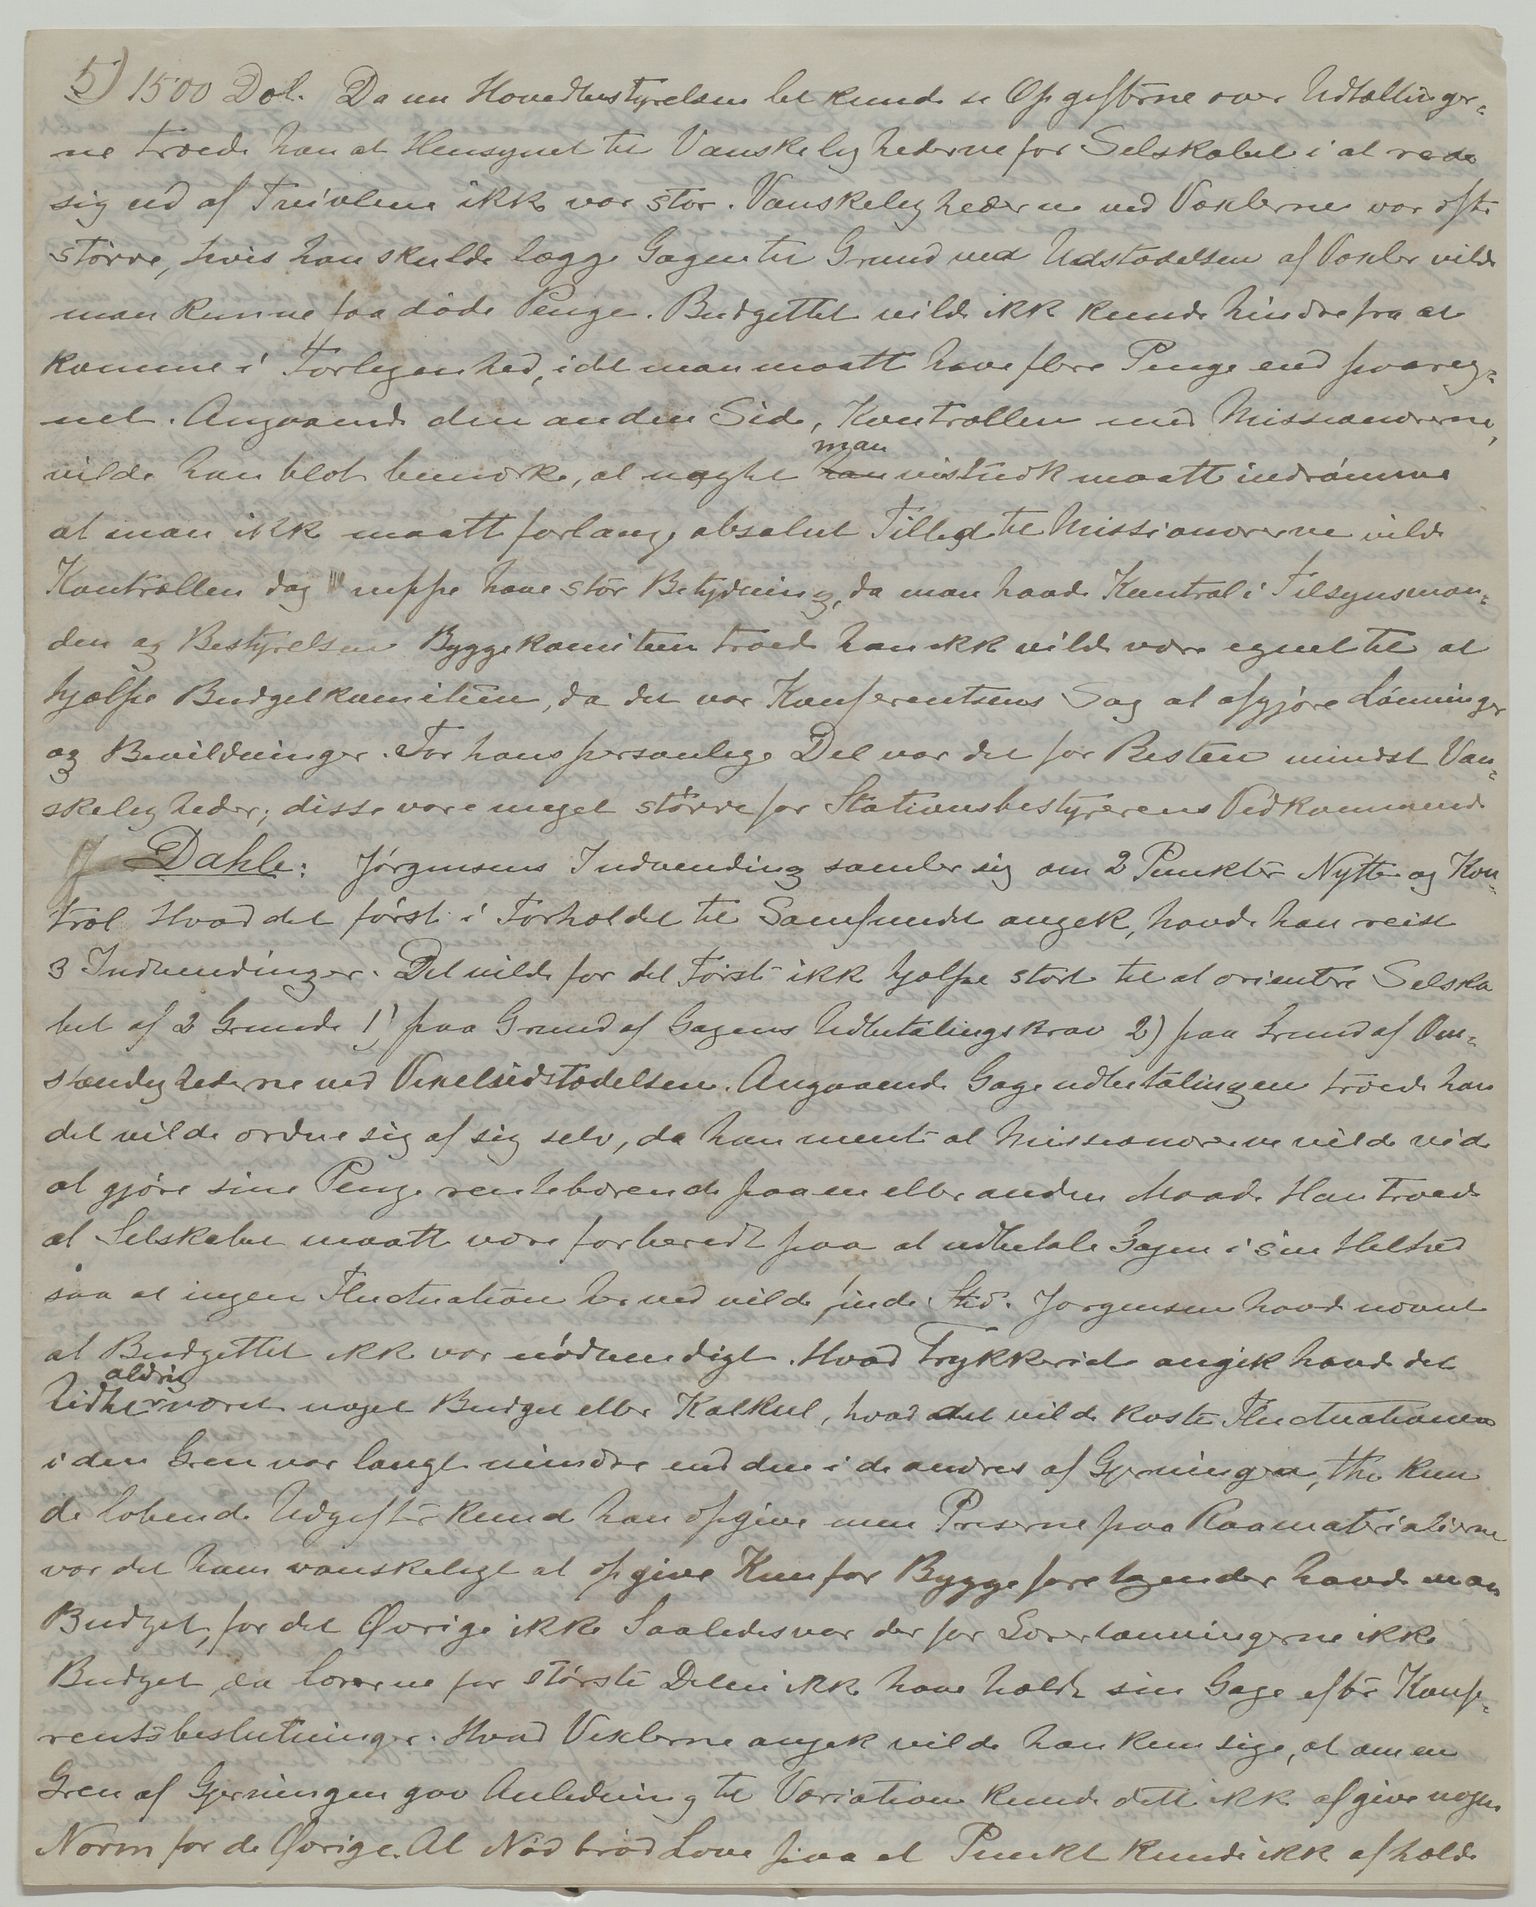 5) 1500 Dol. Da nu Hovedbestyrelsen let kunde se Opgifterne over Udtællinger-
ne troede han at Hensynet til Vanskelighederne for Selskabet i at rede
sig ud af Tvivlene ikke var stor. Vanskelighederne ved Vexlerne var ofte
större, hvis han skulde lægge Gagen til Grund ved Udstædelsen af Vexler vilde
man kunne faa döde Penge. Budgettet vilde ikke kunde hindre fra at
komme i Forlegenhed, idet man maatte have flere Penge end paareg-
net. Angaaende den anden Side, Kontrollen med Missionærerne,
vilde han blot bemærke, at uagtet man vistnok maatte indrömme
at man ikke maatte forlange absolut Tillid til Missionærerne vilde
Kontrollen dog neppe have stor Betydning, da man havde Kontrol i Tilsynsman-
den og Bestyrelsen Byggekomiteen troede han ikke vilde være egnet til at
hjælpe Budgetkomiteen, da det var Konferentsens Sag at afgjöre Lönninger
og Bevildninger. For hans personlige Del var det for Resten mindst Van-
skeligheder; disse vare meget större for Stationsbestyrerens Vedkommende
Dahle: Jörgensens Indvending samler sig om 2 Punkter Nytte og Kon-
trol Hvad det först i Forholdet til Samfundet angik, havde han reist
3 Indvendinger. Det vilde for det Förste ikke hjælpe stort til at orientere Selska
bet af 2 Grunde 1) paa Grund af Gagens Udbetalingskrav 2) paa Grund af Om-
stændighederne ved Vexeludstædelsen. Angaaende Gageudbetalingen troede han
det vilde ordne sig af sig selv, da han mente at Missionærerne vilde vide
at gjöre sine Penge rentebærende paa en eller anden Maade. Han troede
at Selskabet maatte være forberedt paa at udbetale Gagen i sin Helhed
saa at ingen Fluctuation herved vilde finde Sted. Jorgensen havde nævnt
at Budgettet ikke var nödvendigt. Hvad Trykkeriet angik havde det
aldrig
hidtil været noget Budget eller Kalkul, hvad det vilde koste Fluctuationen
i den Gren var langt mindre end den i de andres af Gjerningen, thi kun
de löbende Udgifter kunde han opgive men Priserne paa Raamaterialierne
var det ham vanskeligt at opgive Kun for Byggeforetagender havde man
Budget, for det Øvrige ikke Saaledes var der for Lærerlønningerne ikke
Budget, da lærerne for störste Delen ikke have hævet sin Gage efter Konfe-
rentsbeslutninger. Hvad Vexlerne angik vilde han kun sige, at om en
Gren af Gjerningen gav Anledning til Variation kunde dette ikke afgive nogen
Norm for de Øvrige. At Nöd bröd Love paa et Punkt kunde ikke afholde